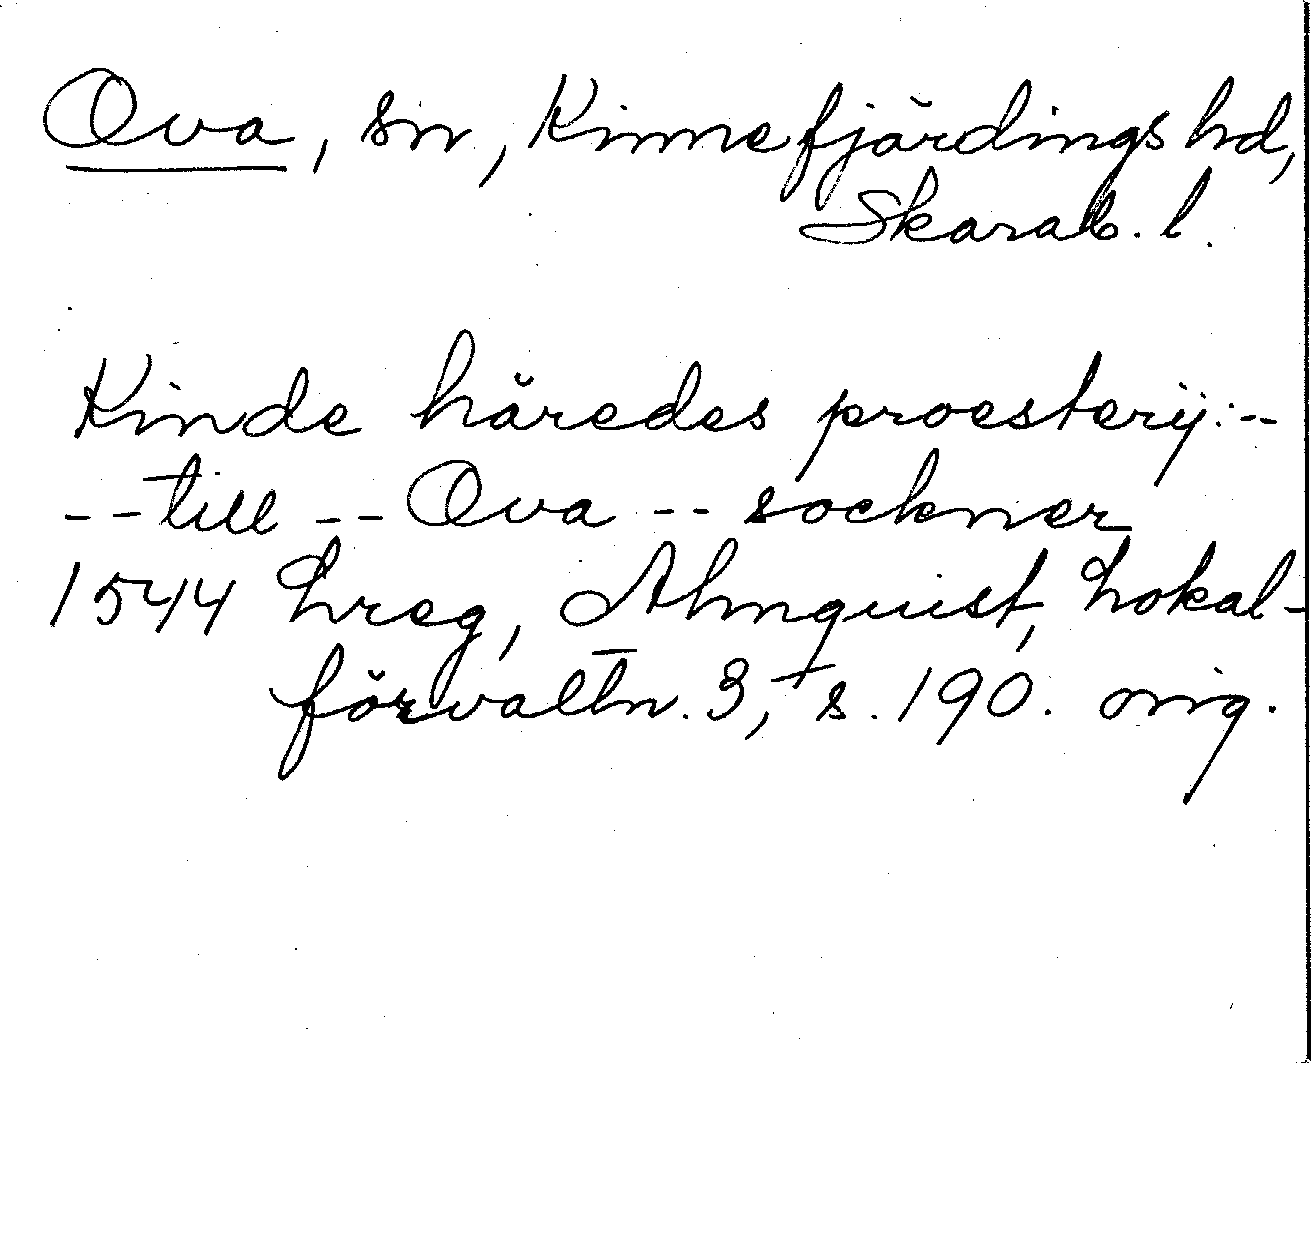 Ova, sn, Kinnefjärdings hd,
Skarab. l.
Kinde häredes proesterij:--
--till -- Ova -- sockner
1544 Lreg, Almquist, Lokal-
förvaltn. 3, s. 190. orig.